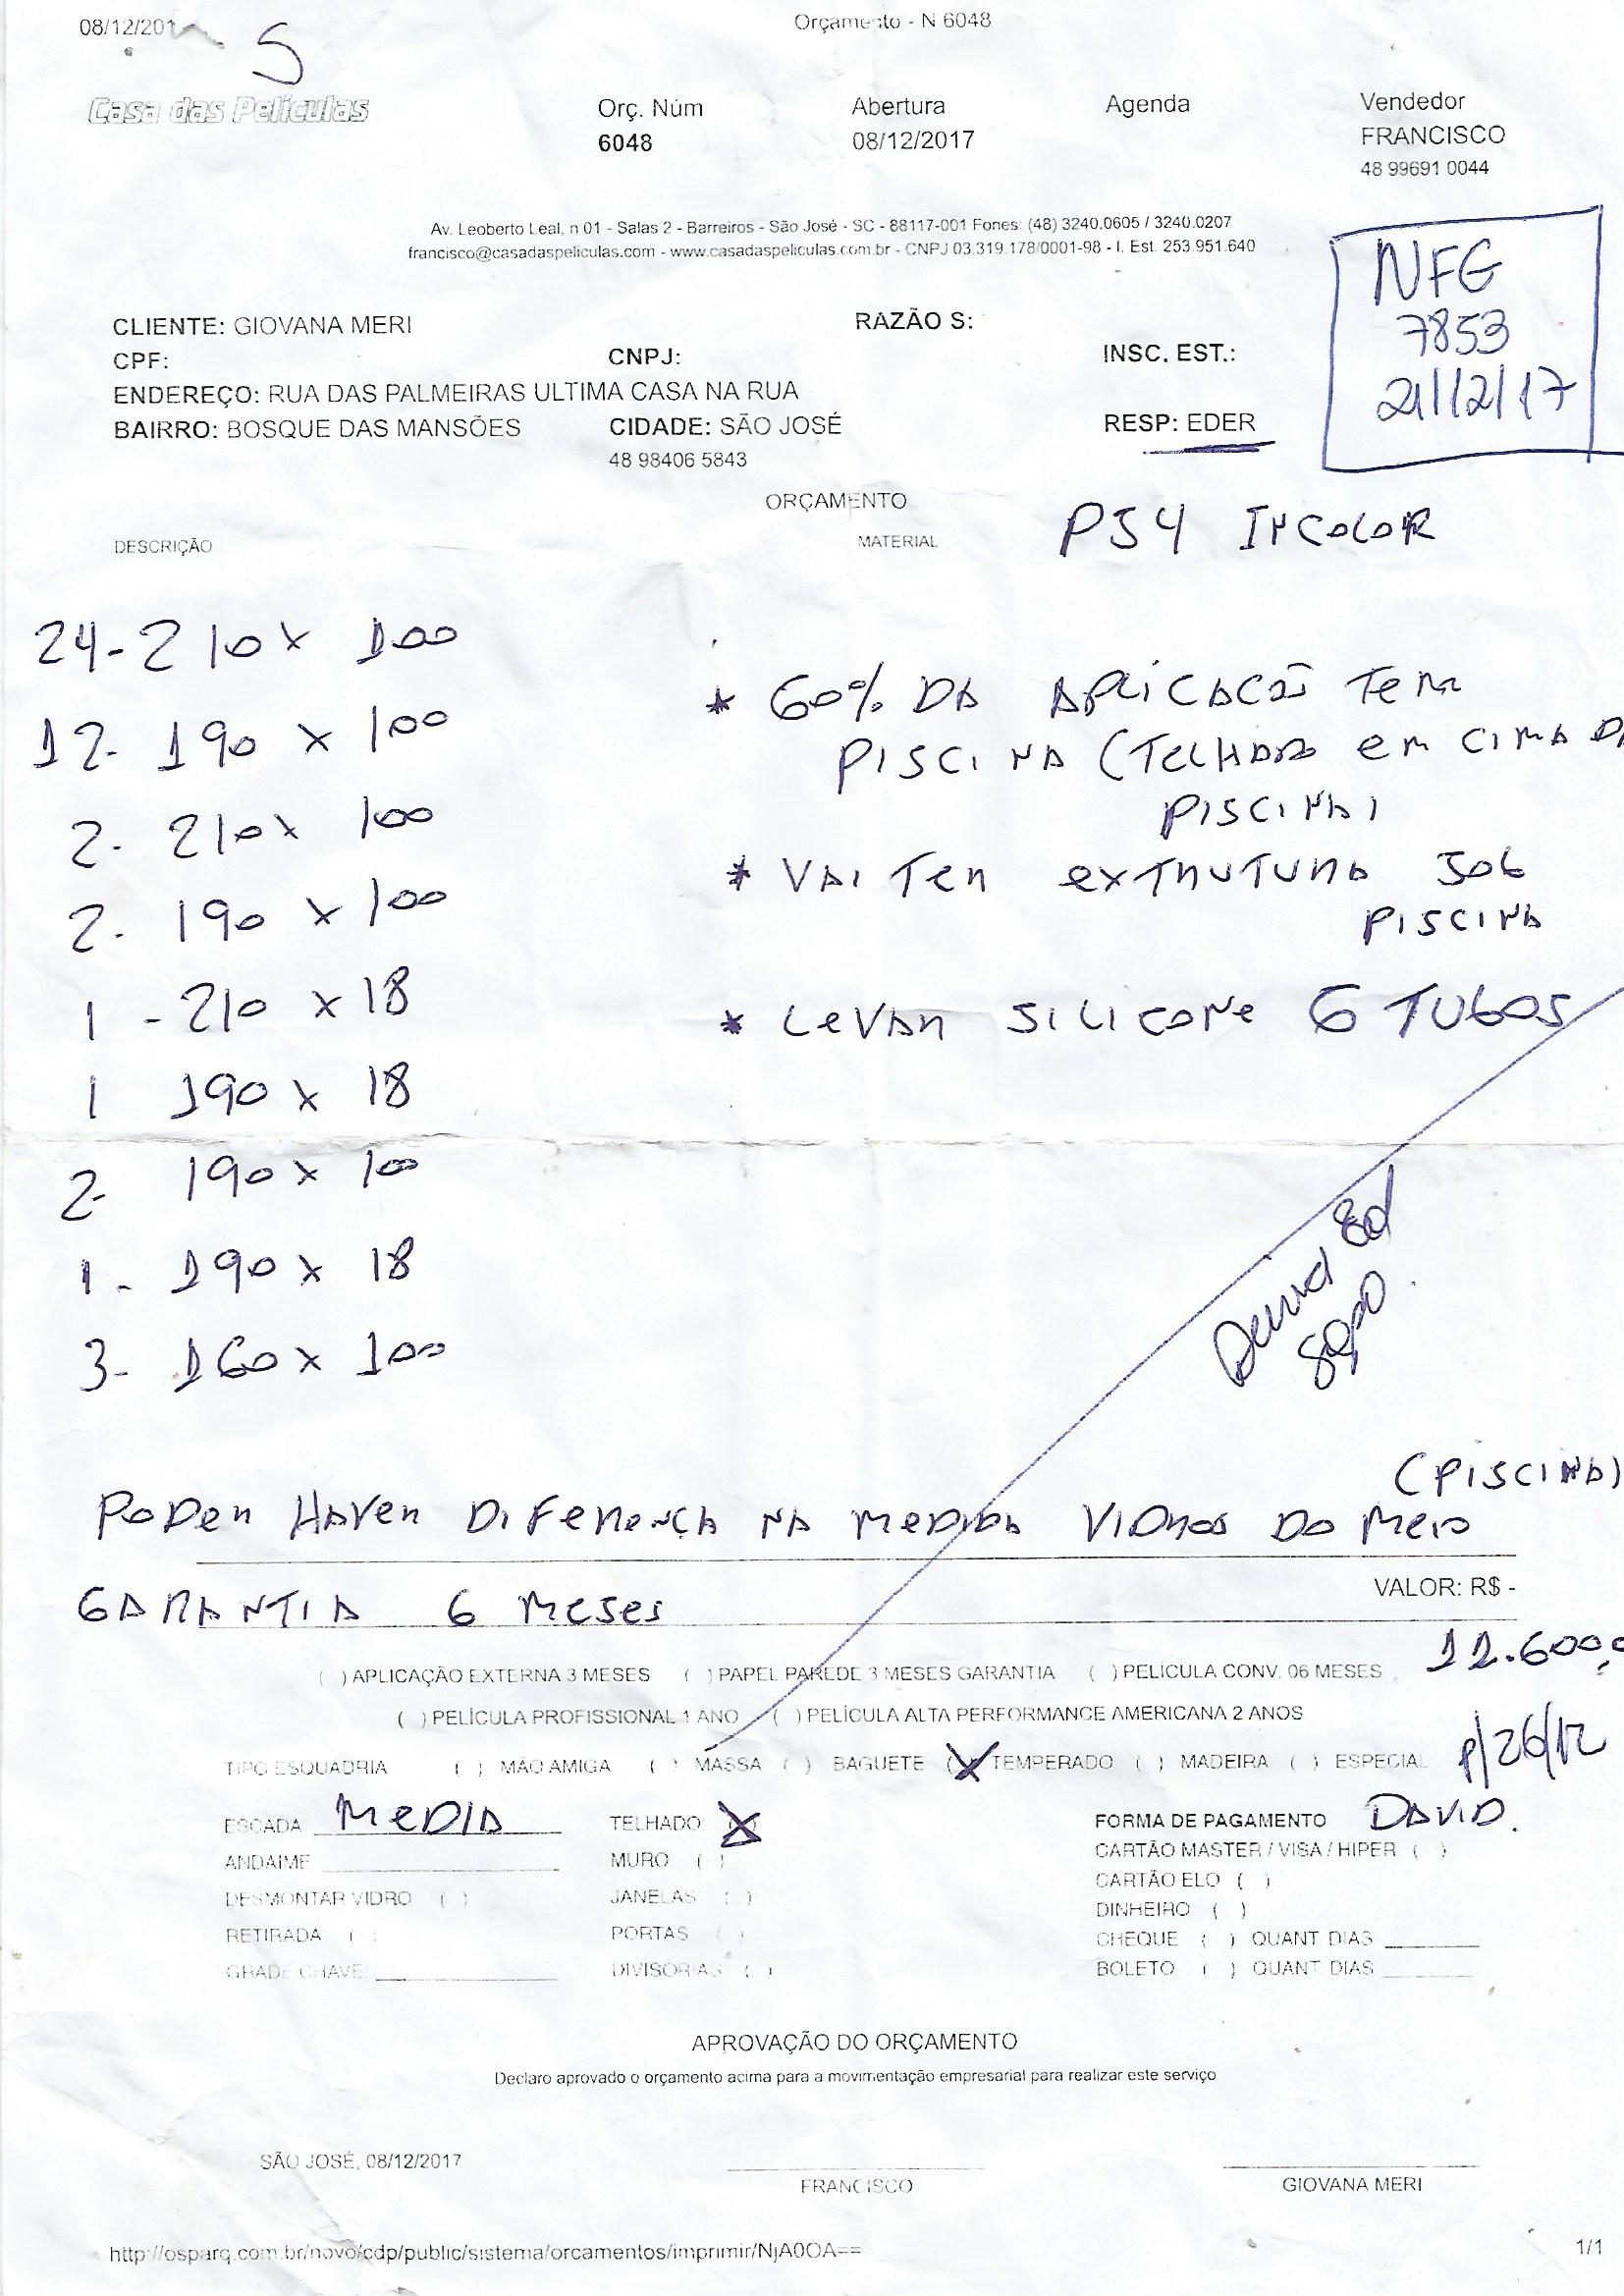 08/12/201
Orçamento - N 6048
S
Casa das Películas
Orç. Núm
Abertura
Agenda
Vendedor
6048
08/12/2017
FRANCISCO
48 99691 0044
Av. Leoberto Leal, n 01 - Salas 2 - Barreiros - São José - SC - 88117-001 Fones: (48) 3240.0605 / 3240.0207
francisco@casadaspeliculas.com - www.casadaspeliculas.com.br - CNPJ 03.319.178/0001-98 - I. Est. 253.951.640
NFG
7853
21/12/17
CLIENTE: GIOVANA MERI
RAZÃO S:
CPF:
CNPJ:
INSC. EST.:
ENDEREÇO: RUA DAS PALMEIRAS ULTIMA CASA NA RUA
BAIRRO: BOSQUE DAS MANSÕES
CIDADE: SÃO JOSÉ
RESP: EDER
48 98406 5843
ORÇAMENTO
DESCRIÇÃO
MATERIAL
PS4 INCOLOR
24- 210 x 100
12- 190 x 100
2- 210 x 100
2- 190 x 100
1 - 210 x 18
1 190 x 18
2- 190 x 100
1 - 190 x 18
3- 160 x 100
* 60% DA APLICACÃO TEM
PISCINA (TELHADO EM CIMA DA
PISCINA)
* VAI TER EXTRUTURA SOB
PISCINA
* LEVAR SILICONE 6 TUBOS
(PISCINA)
PODER HAVER DIFERENÇA NA MEDIDA VIDROS DO MEIO
VALOR: R$ -
GARANTIA 6 MESES
12.600,0
( ) APLICAÇÃO EXTERNA 3 MESES ( ) PAPEL PAREDE 3 MESES GARANTIA ( ) PELÍCULA CONV. 06 MESES
( ) PELÍCULA PROFISSIONAL 1 ANO ( ) PELÍCULA ALTA PERFORMANCE AMERICANA 2 ANOS
p/26/12
TIPO ESQUADRIA ( ) MÃO AMIGA ( ) MASSA ( ) BAGUETE (X) TEMPERADO ( ) MADEIRA ( ) ESPECIAL
ESCADA MEDIA
TELHADO (X)
FORMA DE PAGAMENTO DAVID.
ANDAIME
MURO ( )
CARTÃO MASTER / VISA / HIPER ( )
DESMONTAR VIDRO ( )
JANELAS ( )
CARTÃO ELO ( )
DINHEIRO ( )
RETIRADA ( )
PORTAS ( )
CHEQUE ( ) QUANT DIAS
GRADE CHAVE
DIVISÓRIAS ( )
BOLETO ( ) QUANT DIAS
APROVAÇÃO DO ORÇAMENTO
Declaro aprovado o orçamento acima para a movimentação empresarial para realizar este serviço
SÃO JOSÉ, 08/12/2017
FRANCISCO
GIOVANA MERI
http://osparq.com.br/novo/cdp/public/sistema/orcamentos/imprimir/NjA0OA==
1/1